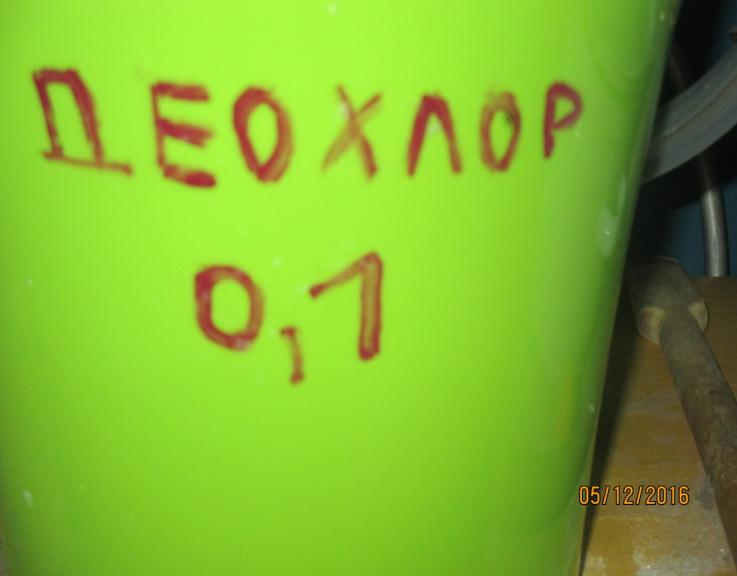 ДЕОХЛОР
0,1
05/12/2016